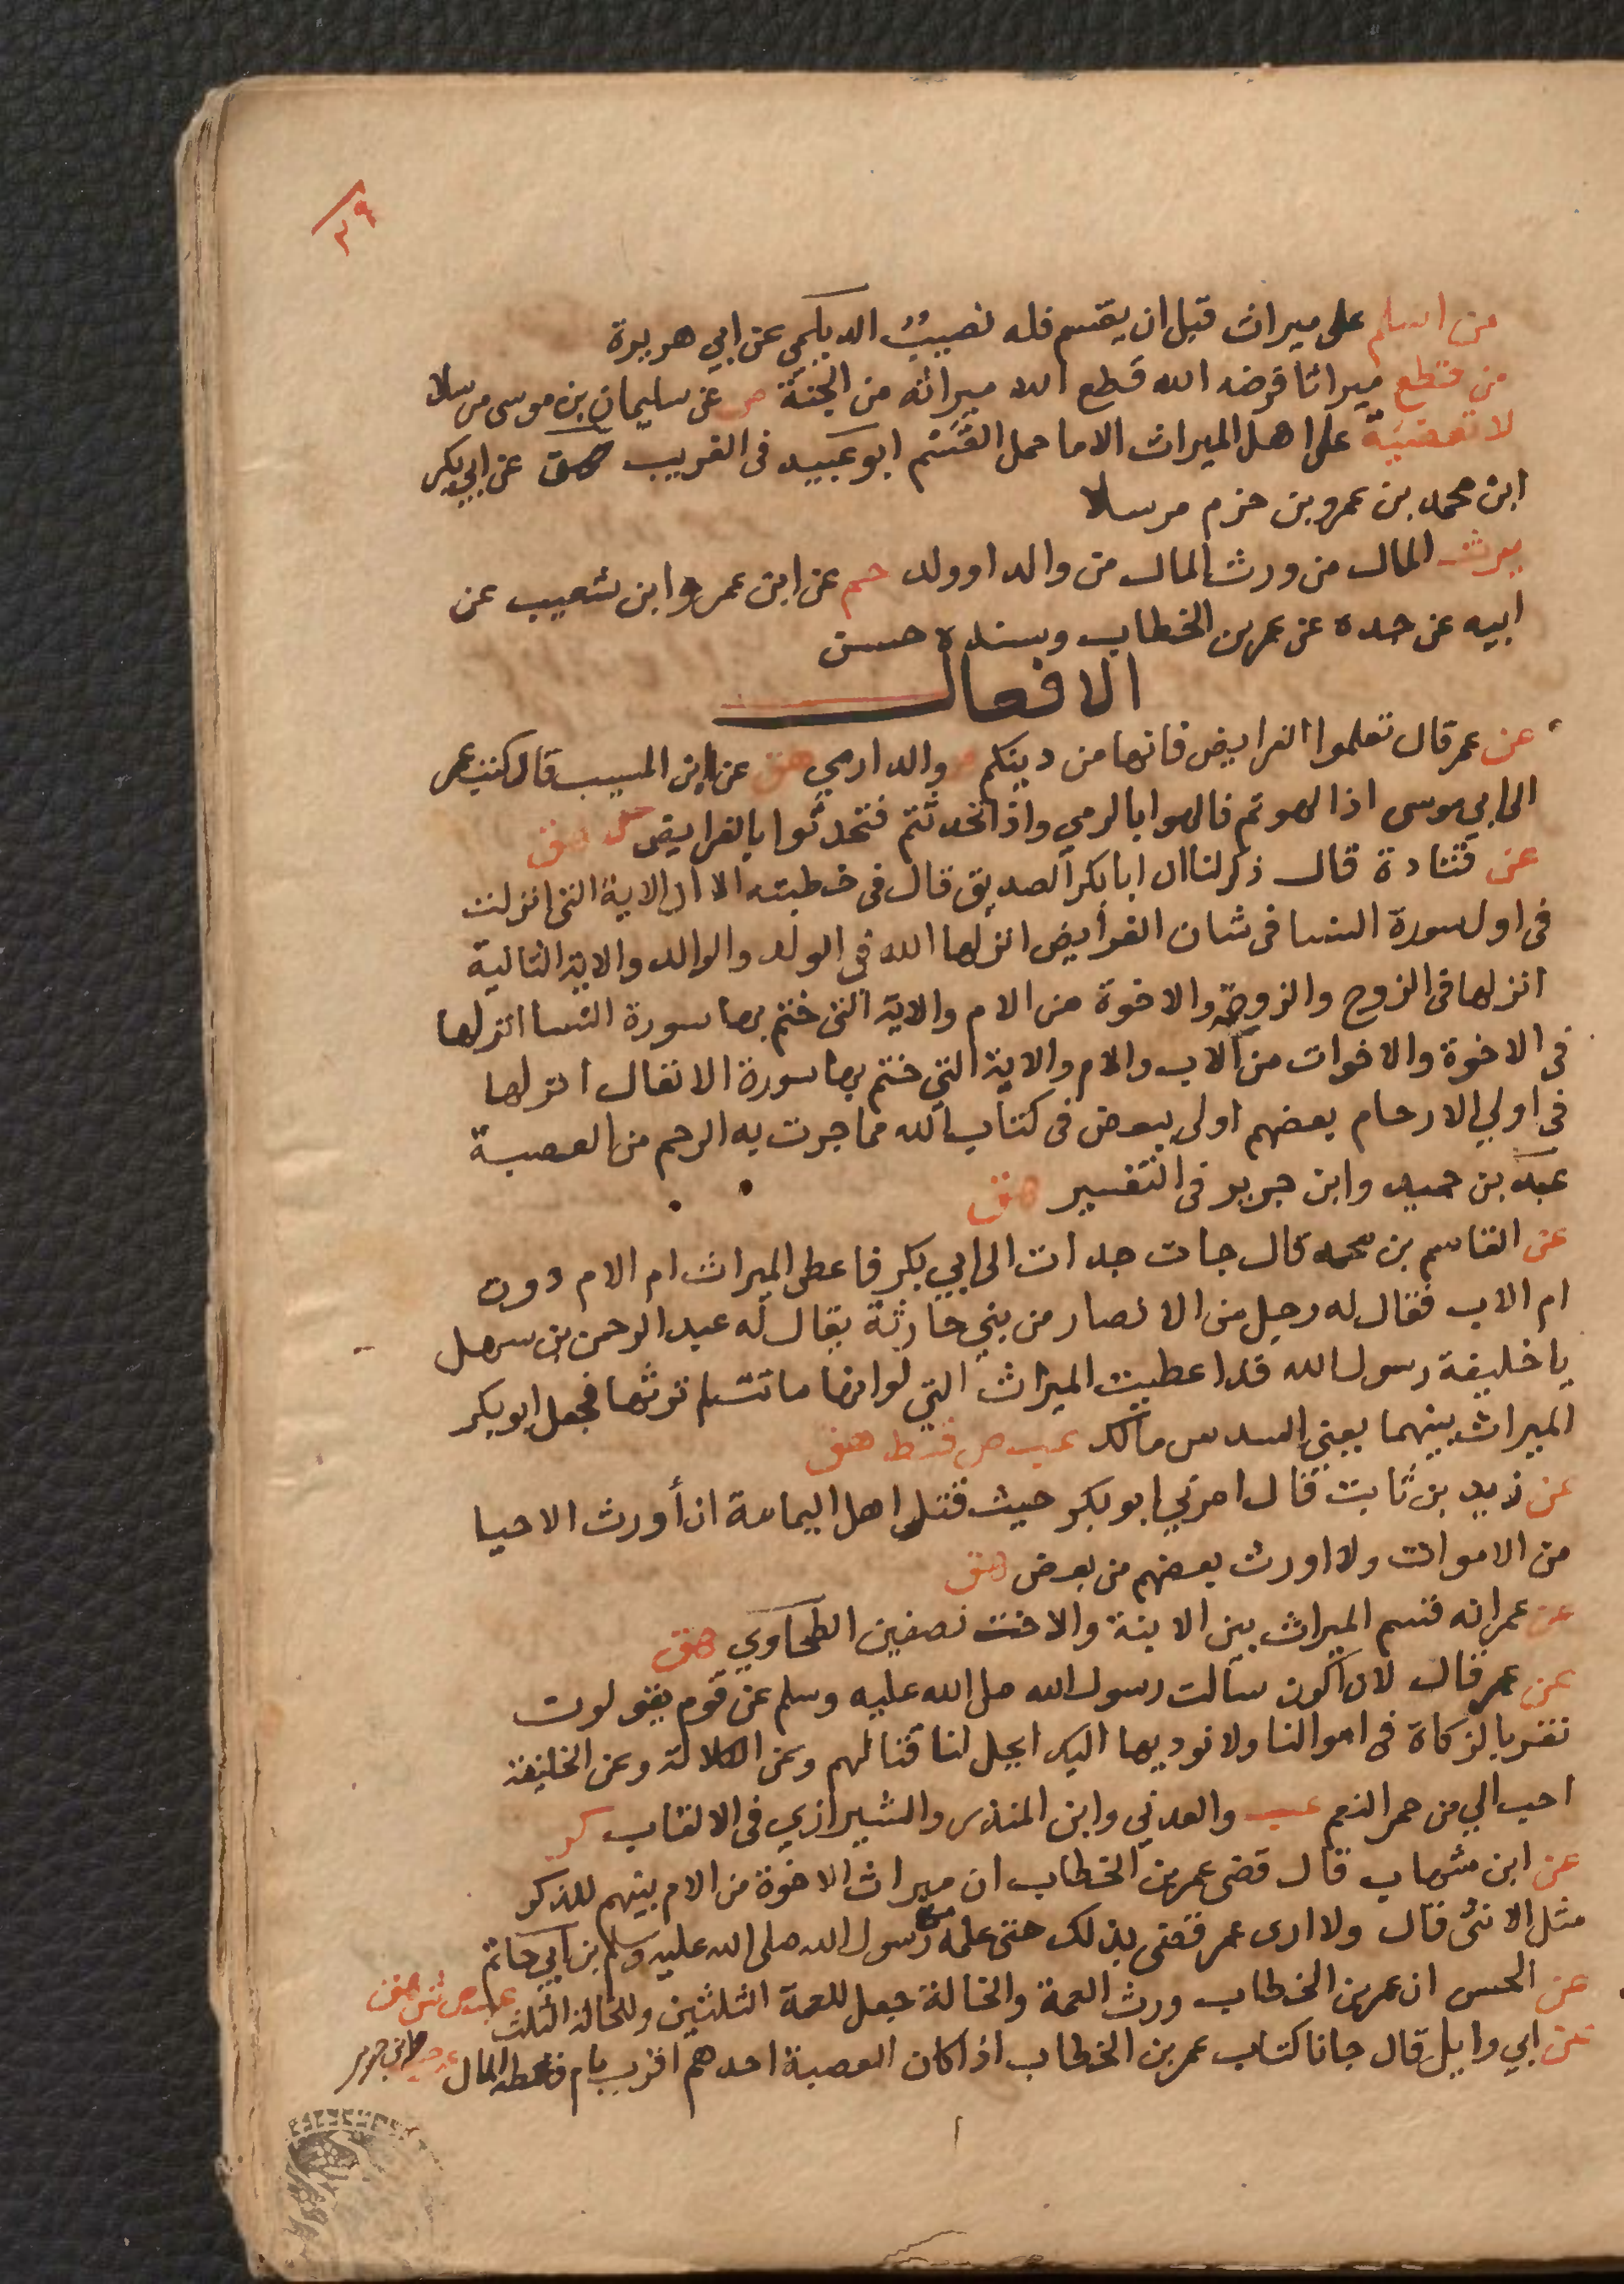 ٣٩
من اسلم على ميراث قبل ان يقسم فله نصيبه الديلمي عن ابي هريرة
من قطع ميراثا فرضه الله قطع الله ميراثه من الجنة ص عن سليمان بن موسى مرسلا
لا تعضية على اهل الميراث الا ما حمل القسم ابو عبيد فى الغريب هق عن ابي بكر
ابن محمد بن عمرو بن حزم مرسلا
يرث المال من ورث المال من والد او ولد حم عن ابن عمر وابن شعيب عن
ابيه عن جده عن عمر بن الخطاب وسنده حسن
الافعال
عن عمر قال تعلموا الفرايض فانها من دينكم ص والدارمي هق عن ابن المسيب قال كتب عمر
الى ابي موسى اذا لهوتم فالهوا بالرمي واذا تحدثتم فتحدثوا بالفرايض هق
عن قتادة قال ذكر لنا ان ابا بكر الصديق قال فى خطبته الا ان الاية التى انزلت
فى اول سورة النسا فى شان الفرايض انزلها الله فى الولد والوالد والاية الثانية
انزلها فى الزوج والزوجة والاخوة من الام والاية التى ختم بها سورة النسا انزلها
فى الاخوة والاخوات من الاب والام والاية التي ختم بها سورة الانفال انزلها
فى اولي الارحام بعضهم اولى ببعض فى كتاب الله مما جرت به الرحم من العصبة
عبد بن حميد وابن جرير فى التفسير هق
عن القاسم بن محمد قال جات جدات الى ابي بكر فاعطى الميراث ام الام دون
ام الاب فقال له رجل من الانصار من بني حارثة يقال له عبد الرحمن بن سهل
يا خليفة رسول الله قد اعطيت الميراث التي لو انها ماتت لم ترثها فجعل ابو بكر
الميراث بينهما يعني السدس مالك عب ص قط هق
عن زيد بن ثابت قال امرني ابو بكر حيث قتل اهل اليمامة ان أورث الاحيا
من الاموات ولا اورث بعضهم من بعض هق
عن عمر انه قسم الميراث بين الابنة والاخت نصفين الطحاوي هق
عن عمر قال لان اكون سالت رسول الله صلى الله عليه وسلم عن قوم يقولون
نقر بالزكاة فى اموالنا ولا نوديها اليك ايحل لنا قتالهم وعن الكلالة وعن الخليفة
احب الي من حمر النعم عب والعدني وابن المنذر والشيرازي فى الالقاب ك
عن ابن شهاب قال قضى عمر بن الخطاب ان ميراث الاخوة من الام بينهم للذكر
مثل الانثى قال ولا ارى عمر قضى بذلك حتى علمه من رسول الله صلى الله عليه وسلم بن ابي حاتم
عن الحسن ان عمر بن الخطاب ورث العمة والخالة جعل للعمة الثلثين وللخالة الثلث عب ص ش هق
عن ابي وايل قال جانا كتاب عمر بن الخطاب اذا كان العصبة احدهم اقرب بام فاعطه المال عب ص وابن جرير